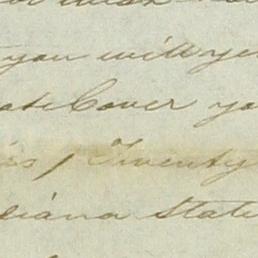 you will ye
ate Cover yo
is, Twenty
siana State